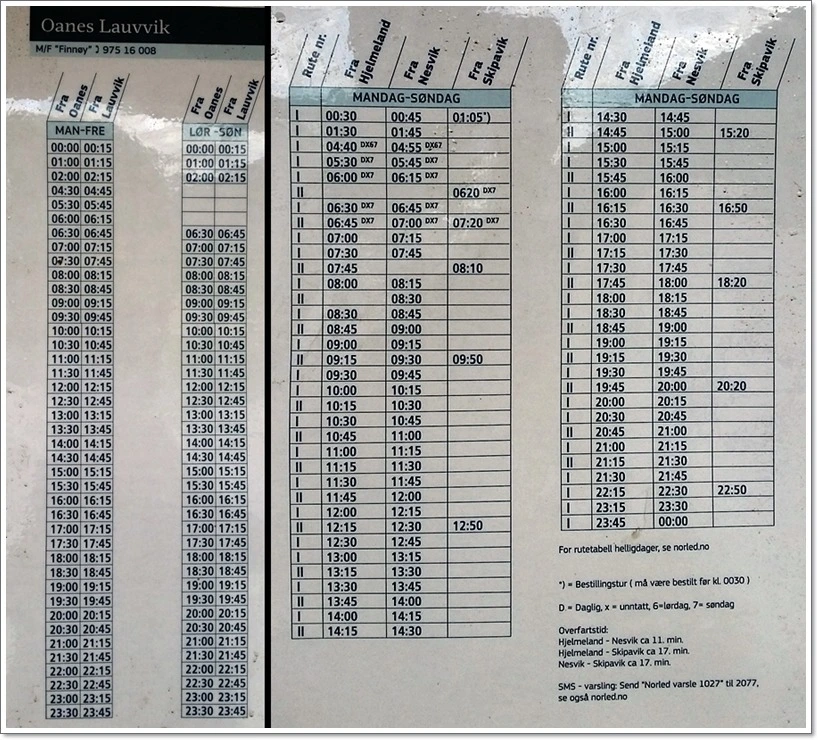 Oanes Lauvvik
M/F "Finnøy" 975 16 008
Fra Oanes Fra Lauvvik
MAN-FRE
00:00 00:15
01:00 01:15
02:00 02:15
04:30 04:45
05:30 05:45
06:00 06:15
06:30 06:45
07:00 07:15
07:30 07:45
08:00 08:15
08:30 08:45
09:00 09:15
09:30 09:45
10:00 10:15
10:30 10:45
11:00 11:15
11:30 11:45
12:00 12:15
12:30 12:45
13:00 13:15
13:30 13:45
14:00 14:15
14:30 14:45
15:00 15:15
15:30 15:45
16:00 16:15
16:30 16:45
17:00 17:15
17:30 17:45
18:00 18:15
18:30 18:45
19:00 19:15
19:30 19:45
20:00 20:15
20:30 20:45
21:00 21:15
21:30 21:45
22:00 22:15
22:30 22:45
23:00 23:15
23:30 23:45
Fra Oanes Fra Lauvvik
LØR -SØN
00:00 00:15
01:00 01:15
02:00 02:15
06:30 06:45
07:00 07:15
07:30 07:45
08:00 08:15
08:30 08:45
09:00 09:15
09:30 09:45
10:00 10:15
10:30 10:45
11:00 11:15
11:30 11:45
12:00 12:15
12:30 12:45
13:00 13:15
13:30 13:45
14:00 14:15
14:30 14:45
15:00 15:15
15:30 15:45
16:00 16:15
16:30 16:45
17:00 17:15
17:30 17:45
18:00 18:15
18:30 18:45
19:00 19:15
19:30 19:45
20:00 20:15
20:30 20:45
21:00 21:15
21:30 21:45
22:00 22:15
22:30 22:45
23:00 23:15
23:30 23:45
Rute nr. Fra Hjelmeland Fra Nesvik Fra Skipavik
MANDAG-SØNDAG
I 00:30 00:45 01:05*)
I 01:30 01:45
I 04:40 DX67 04:55 DX67
I 05:30 DX7 05:45 DX7
I 06:00 DX7 06:15 DX7
II 0620 DX7
I 06:30 DX7 06:45 DX7
II 06:45 DX7 07:00 DX7 07:20 DX7
I 07:00 07:15
I 07:30 07:45
II 07:45 08:10
I 08:00 08:15
II 08:30
I 08:30 08:45
II 08:45 09:00
I 09:00 09:15
II 09:15 09:30 09:50
I 09:30 09:45
I 10:00 10:15
II 10:15 10:30
I 10:30 10:45
II 10:45 11:00
I 11:00 11:15
II 11:15 11:30
I 11:30 11:45
II 11:45 12:00
I 12:00 12:15
II 12:15 12:30 12:50
I 12:30 12:45
I 13:00 13:15
II 13:15 13:30
I 13:30 13:45
II 13:45 14:00
I 14:00 14:15
II 14:15 14:30
Rute nr. Fra Hjelmeland Fra Nesvik Fra Skipavik
MANDAG-SØNDAG
I 14:30 14:45
II 14:45 15:00 15:20
I 15:00 15:15
I 15:30 15:45
II 15:45 16:00
I 16:00 16:15
II 16:15 16:30 16:50
I 16:30 16:45
I 17:00 17:15
II 17:15 17:30
I 17:30 17:45
II 17:45 18:00 18:20
I 18:00 18:15
I 18:30 18:45
II 18:45 19:00
I 19:00 19:15
II 19:15 19:30
I 19:30 19:45
II 19:45 20:00 20:20
I 20:00 20:15
I 20:30 20:45
II 20:45 21:00
I 21:00 21:15
II 21:15 21:30
I 21:30 21:45
I 22:15 22:30 22:50
I 23:15 23:30
I 23:45 00:00
For rutetabell helligdager, se norled.no
*) = Bestillingstur ( må være bestilt før kl. 0030 )
D = Daglig, x = unntatt, 6=lørdag, 7= søndag
Overfartstid:
Hjelmeland - Nesvik ca 11. min.
Hjelmeland - Skipavik ca 17. min.
Nesvik - Skipavik ca 17. min.
SMS - varsling: Send "Norled varsle 1027" til 2077,
se også norled.no